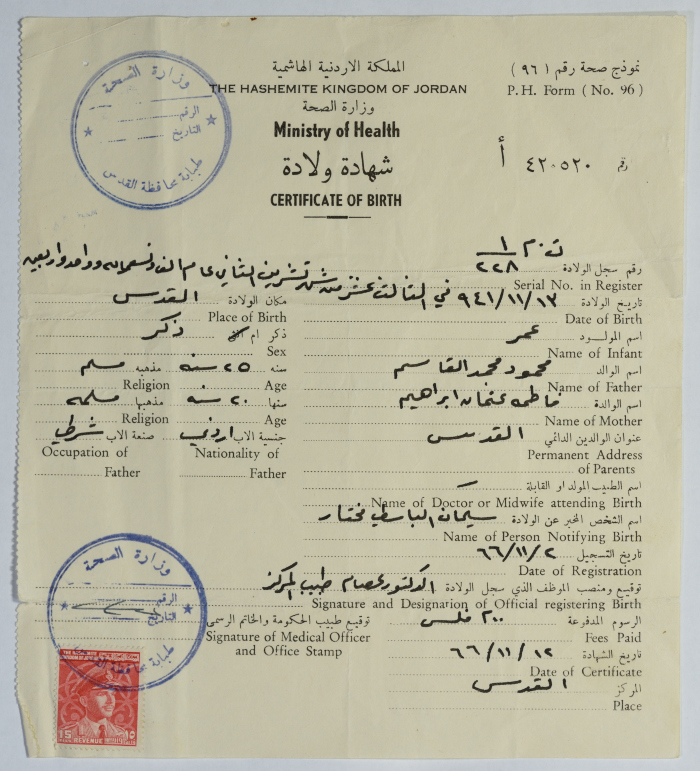 المملكة الاردنية الهاشمية
THE HASHEMITE KINGDOM OF JORDAN
وزارة الصحة
Ministry of Health
شهادة ولادة
CERTIFICATE OF BIRTH
نموذج صحة رقم (٩٦)
P. H. Form ( No. 96 )
رقم ٤٢٠٥٢٠ أ
وزارة الصحة
الرقم
التاريخ
طبابة محافظة القدس
رقم سجل الولادة ت.م ١ / ٢٢٨
Serial No. in Register
تاريخ الولادة ٩٤١/١١/١٣ في الثالث عشر من شهر تشرين الثاني عام الف وتسعمائه وواحد واربعين
Date of Birth
مكان الولادة القدس
Place of Birth
اسم المولود عمر
Name of Infant
ذكر ام انثى ذكر
Sex
اسم الوالد محمود محمد القاسم
Name of Father
سنه ٢٥ سنه مذهبه مسلم
Age Religion
اسم الوالدة فاطمه عثمان ابراهيم
Name of Mother
سنها ٢٠ سنه مذهبها مسلمه
Age Religion
عنوان الوالدين الدائمي القدس
Permanent Address
of Parents
جنسية الاب اردني صنعة الاب شرطي
Nationality of Occupation of
Father Father
اسم الطبيب المولد او القابلة
Name of Doctor or Midwife attending Birth
اسم الشخص المخبر عن الولادة الباسطي مختار
Name of Person Notifying Birth
تاريخ التسجيل ٦٦/١١/٢
Date of Registration
توقيع ومنصب الموظف الذي سجل الولادة الدكتور عصام طبيب المركز
Signature and Designation of Official registering Birth
الرسوم المدفوعة ٢٠٠ فلس
Fees Paid
توقيع طبيب الحكومة والخاتم الرسمي
Signature of Medical Officer
and Office Stamp
تاريخ الشهادة ٦٦/١١/١٢
Date of Certificate
المركز القدس
Place
وزارة الصحة
الرقم
التاريخ
طبابة محافظة القدس
THE HASHEMITE
KINGDOM OF JORDAN
15 REVENUE ١٥